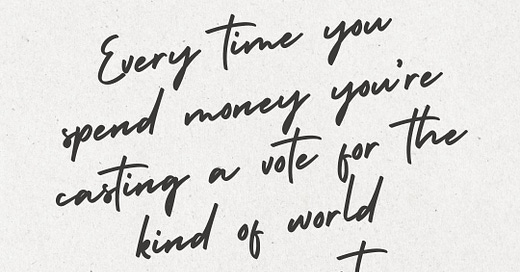 Every time you
spend money you're
casting a vote for the
kind of world